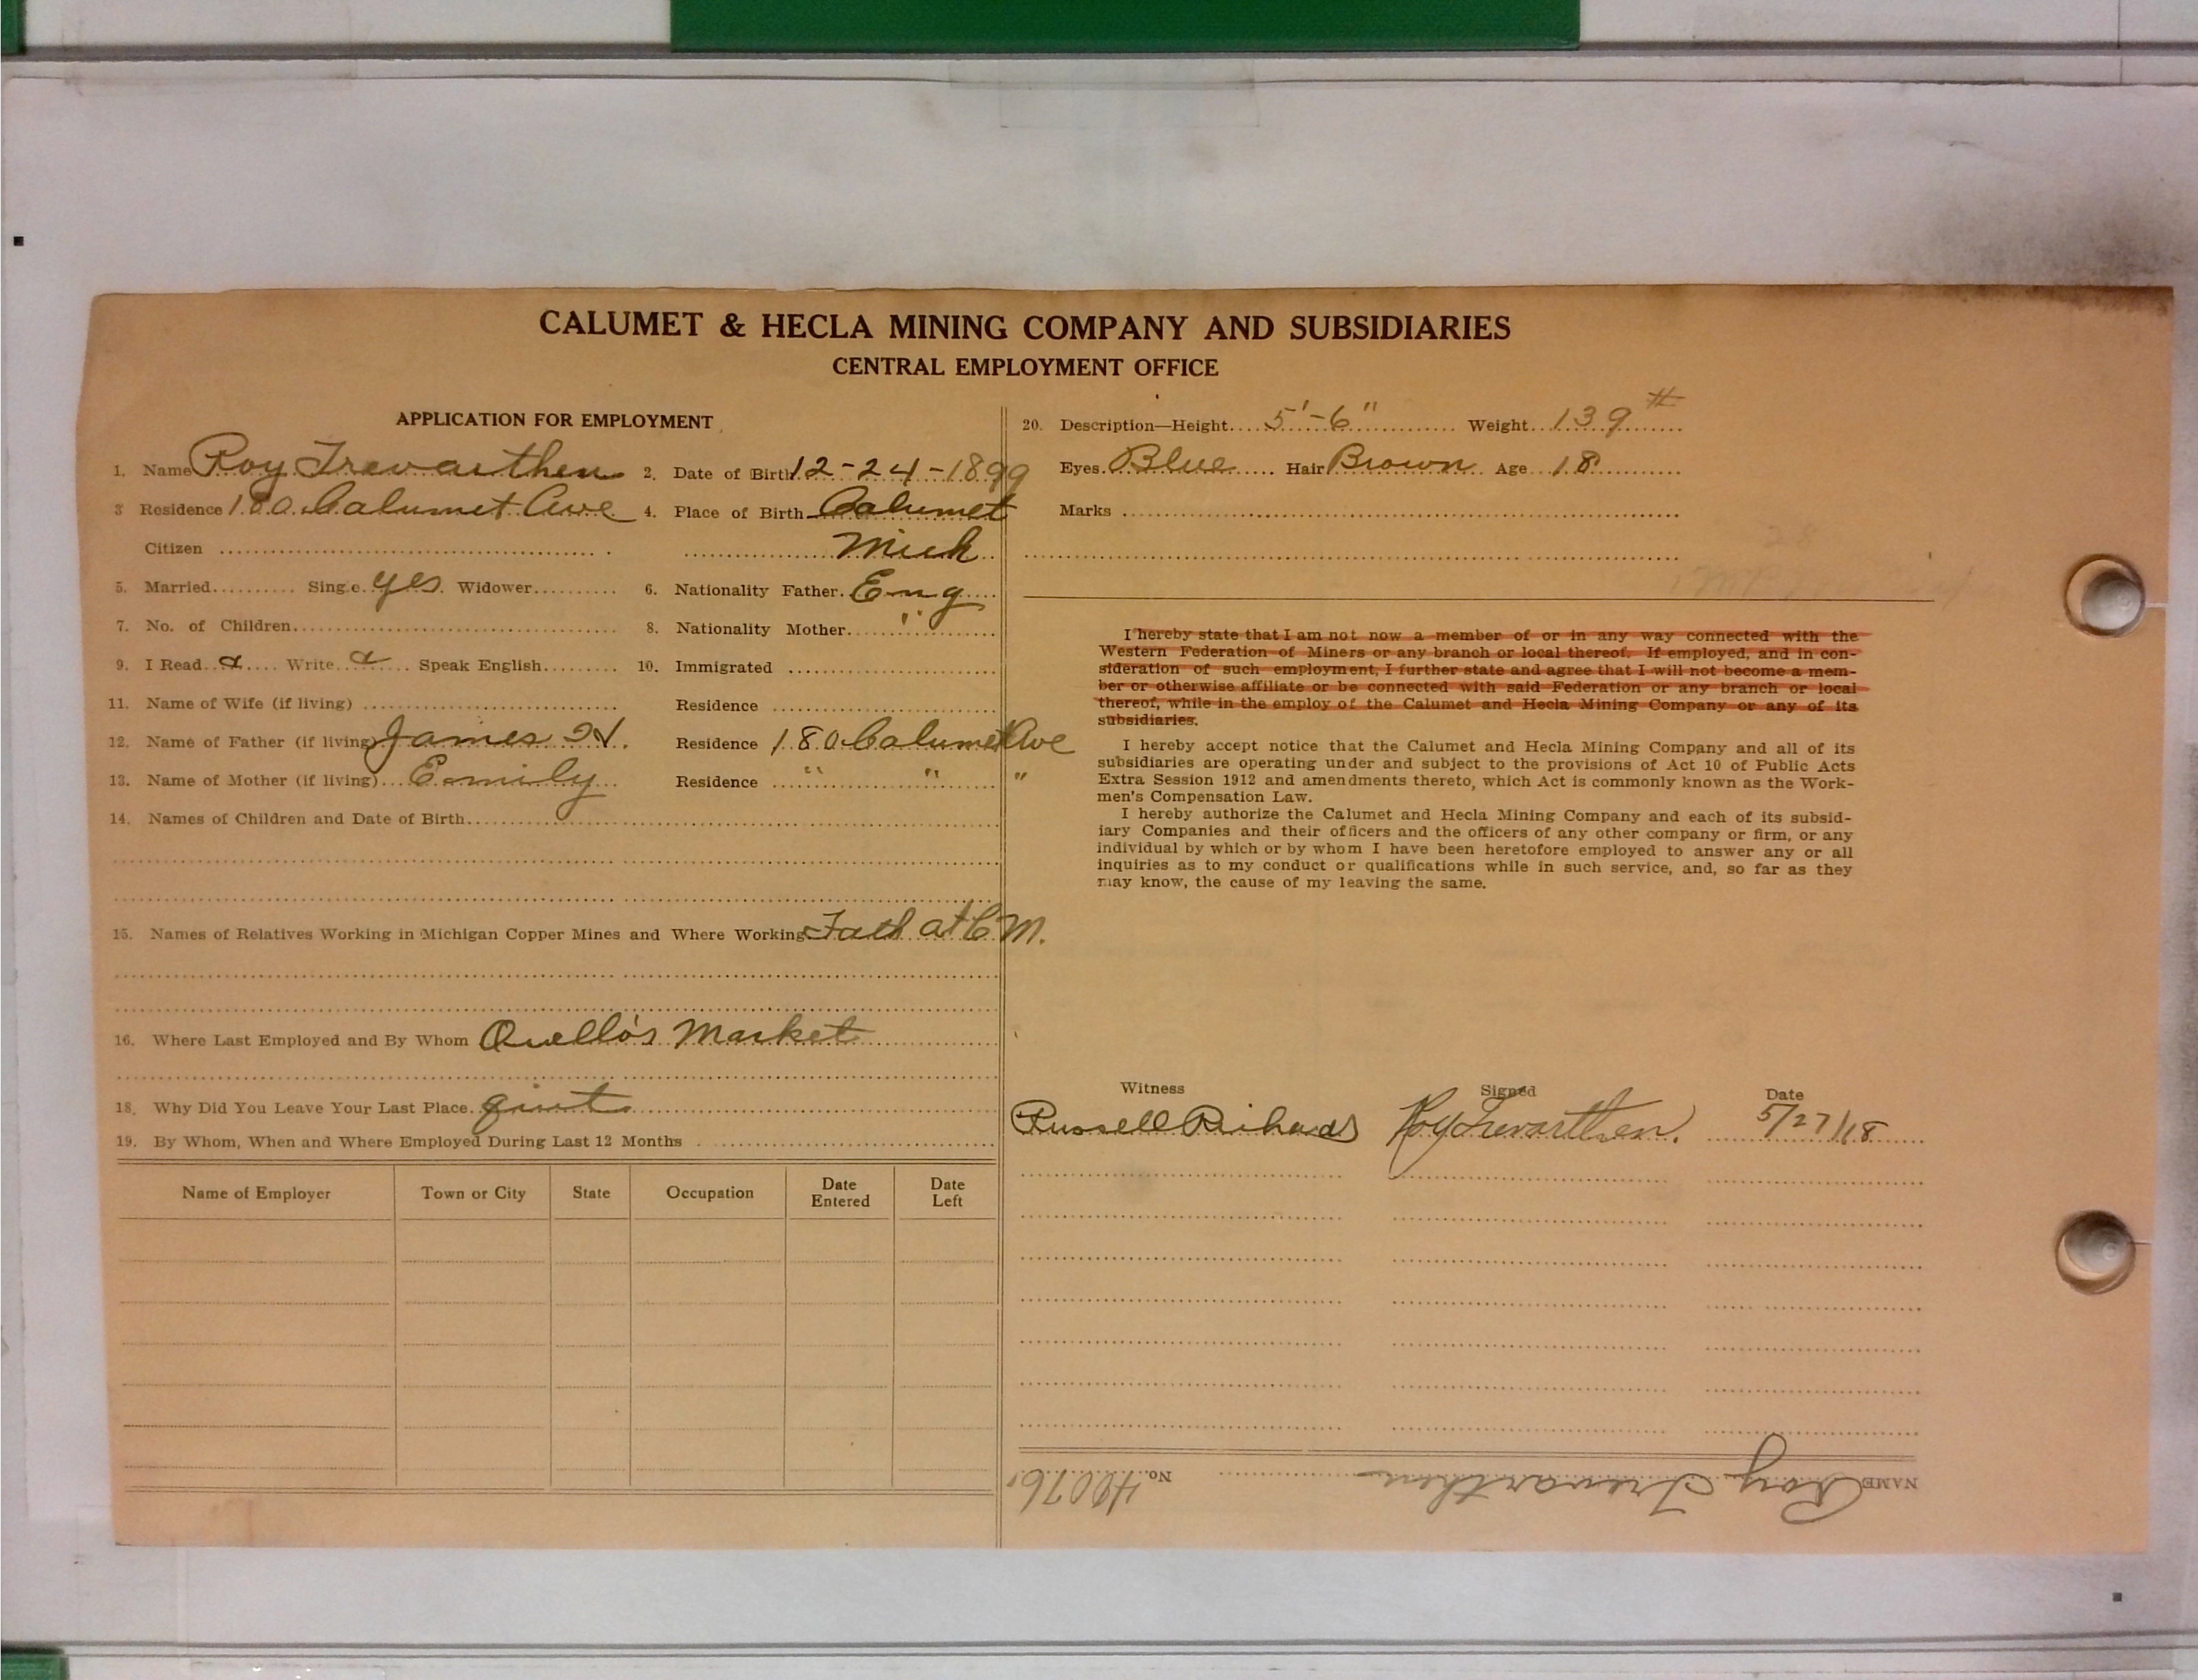 CALUMET & HECLA MINING COMPANY AND SUBSIDIARIES
CENTRAL EMPLOYMENT OFFICE
APPLICATION FOR EMPLOYMENT
1. Name Roy Trevarthen 2. Date of Birth 12-24-1899
3 Residence 180 Calumet Ave 4. Place of Birth Calumet
Citizen Mich
5. Married Single yes Widower 6. Nationality Father Eng
7. No. of Children 8. Nationality Mother "
9. I Read Write Speak English 10. Immigrated
11. Name of Wife (if living) Residence
12. Name of Father (if living) James Residence 180 Calumet Ave
13. Name of Mother (if living) Emily Residence " " "
14. Names of Children and Date of Birth
15. Names of Relatives Working in Michigan Copper Mines and Where Working Fath at C.M.
16. Where Last Employed and By Whom Quello's Market
18. Why Did You Leave Your Last Place quit
19. By Whom, When and Where Employed During Last 12 Months
Name of Employer Town or City State Occupation Date Entered Date Left
20. Description—Height 5'-6" Weight 139 #
Eyes Blue Hair Brown Age 18
Marks
28
I hereby state that I am not now a member of or in any way connected with the
Western Federation of Miners or any branch or local thereof. If employed, and in con-
sideration of such employment, I further state and agree that I will not become a mem-
ber or otherwise affiliate or be connected with said Federation or any branch or local
thereof, while in the employ of the Calumet and Hecla Mining Company or any of its
subsidiaries.
I hereby accept notice that the Calumet and Hecla Mining Company and all of its
subsidiaries are operating under and subject to the provisions of Act 10 of Public Acts
Extra Session 1912 and amendments thereto, which Act is commonly known as the Work-
men's Compensation Law.
I hereby authorize the Calumet and Hecla Mining Company and each of its subsid-
iary Companies and their officers and the officers of any other company or firm, or any
individual by which or by whom I have been heretofore employed to answer any or all
inquiries as to my conduct or qualifications while in such service, and, so far as they
may know, the cause of my leaving the same.
Witness Signed Date
Russell Richards Roy Trevarthen. 5/27/18
NAME Roy Trevarthen No. 40076